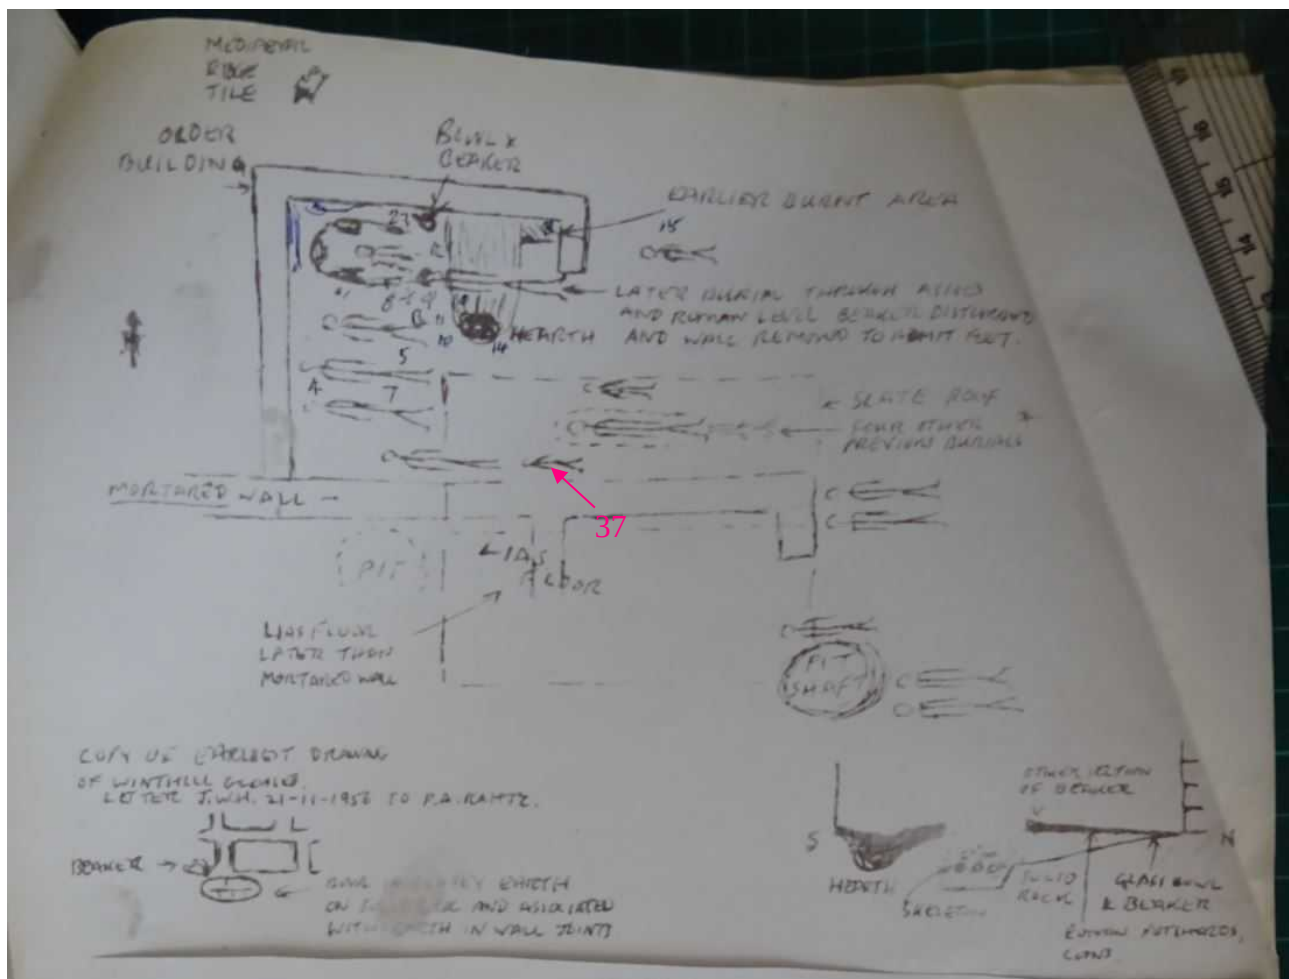 MEDIAEVAL
RIDGE
TILE
OLDER
BUILDING
BOWL &
BEAKER
EARLIER BURNT AREA
15
27
LATER BURIAL THROUGH ASHES
AND ROMAN LEVEL BEAKER DISTURBED
AND WALL REMOVED TO ADMIT FEET.
8
9
11
10
HEARTH
14
5
4
7
SLATE ROOF
FOUR OTHER
PREVIOUS BURIALS
MORTARED WALL
37
PIT
LIAS
FLOOR
LIAS FLOOR
LATER THAN
MORTARED WALL
PIT
SHAFT
COPY OF EARLIEST DRAWING
OF WINTHILL
LETTER J.W.H. 21-11-1956 TO P.A. RAHTZ.
BEAKER
EARTH
ON AND ASSOCIATED
WITH EARTH IN WALL JOINTS
OTHER SECTION
OF BEAKER
S
N
HEARTH
SKELETON
SOLID
ROCK
GLASS BOWL
& BEAKER
ROMAN POTSHERDS,
COINS